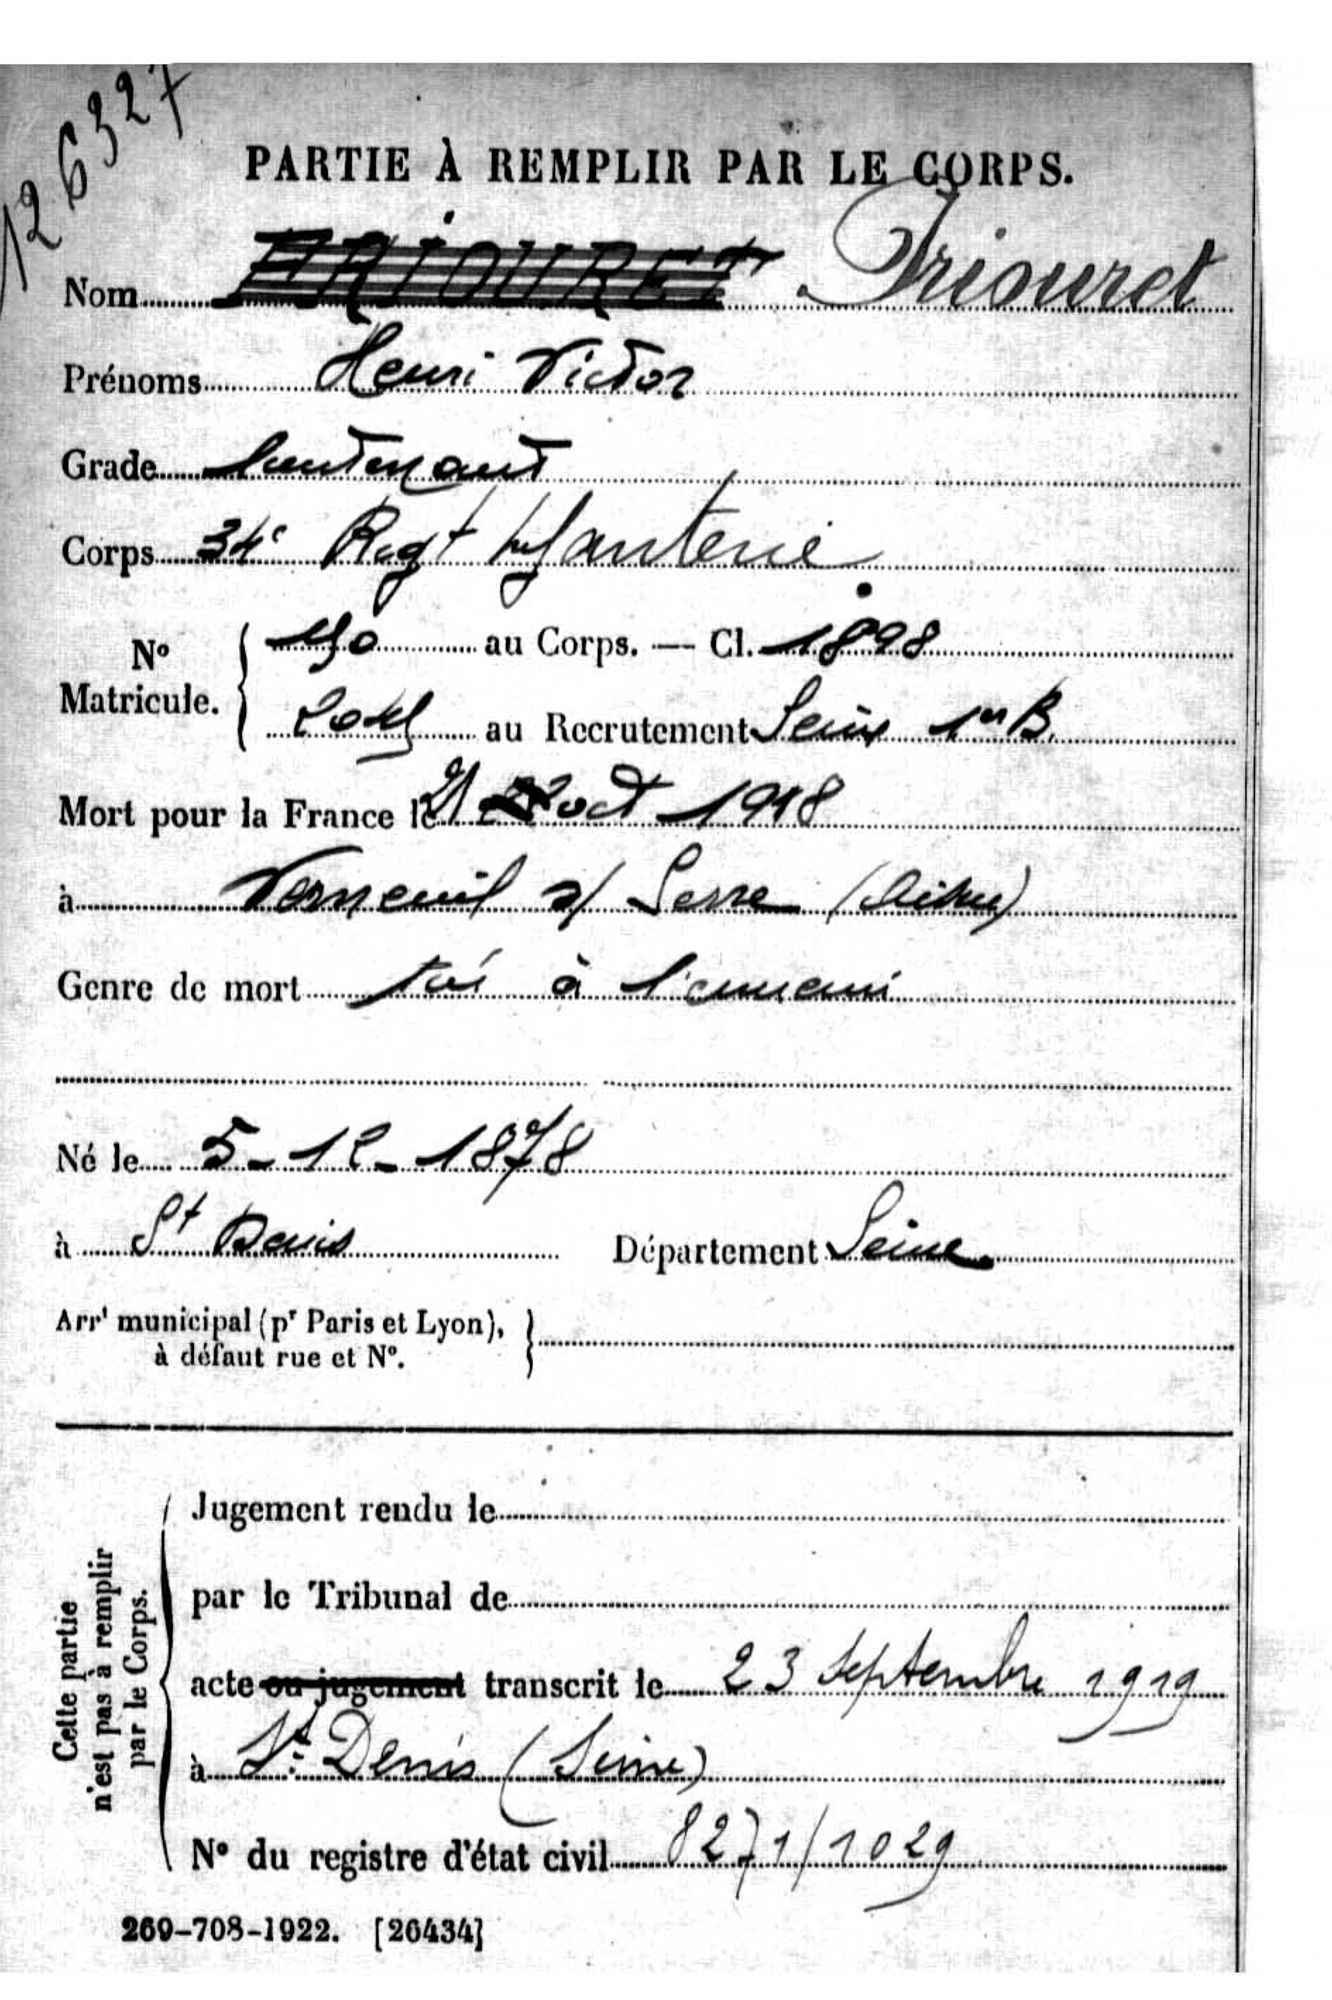 126327
PARTIE À REMPLIR PAR LE CORPS.
Nom FRIOURET Friouret
Prénoms Henri Victor
Grade lieutenant
Corps 34e Regt Infanterie
No Matricule. au Corps. — Cl. 1898
au Recrutement Seine 1er B.
Mort pour la France le 21 oct 1918
à Verneuil s/ Serre (Aisne)
Genre de mort tué à l'ennemi
Né le 5-12-1878
à St Denis Département Seine
Arrt municipal (pr Paris et Lyon),
à défaut rue et No.
Cette partie
n'est pas à remplir
par le Corps.
Jugement rendu le
par le Tribunal de
acte ou jugement transcrit le 23 Septembre 1919
à St Denis (Seine)
No du registre d'état civil 8271/1029
269-708-1922. [26434]